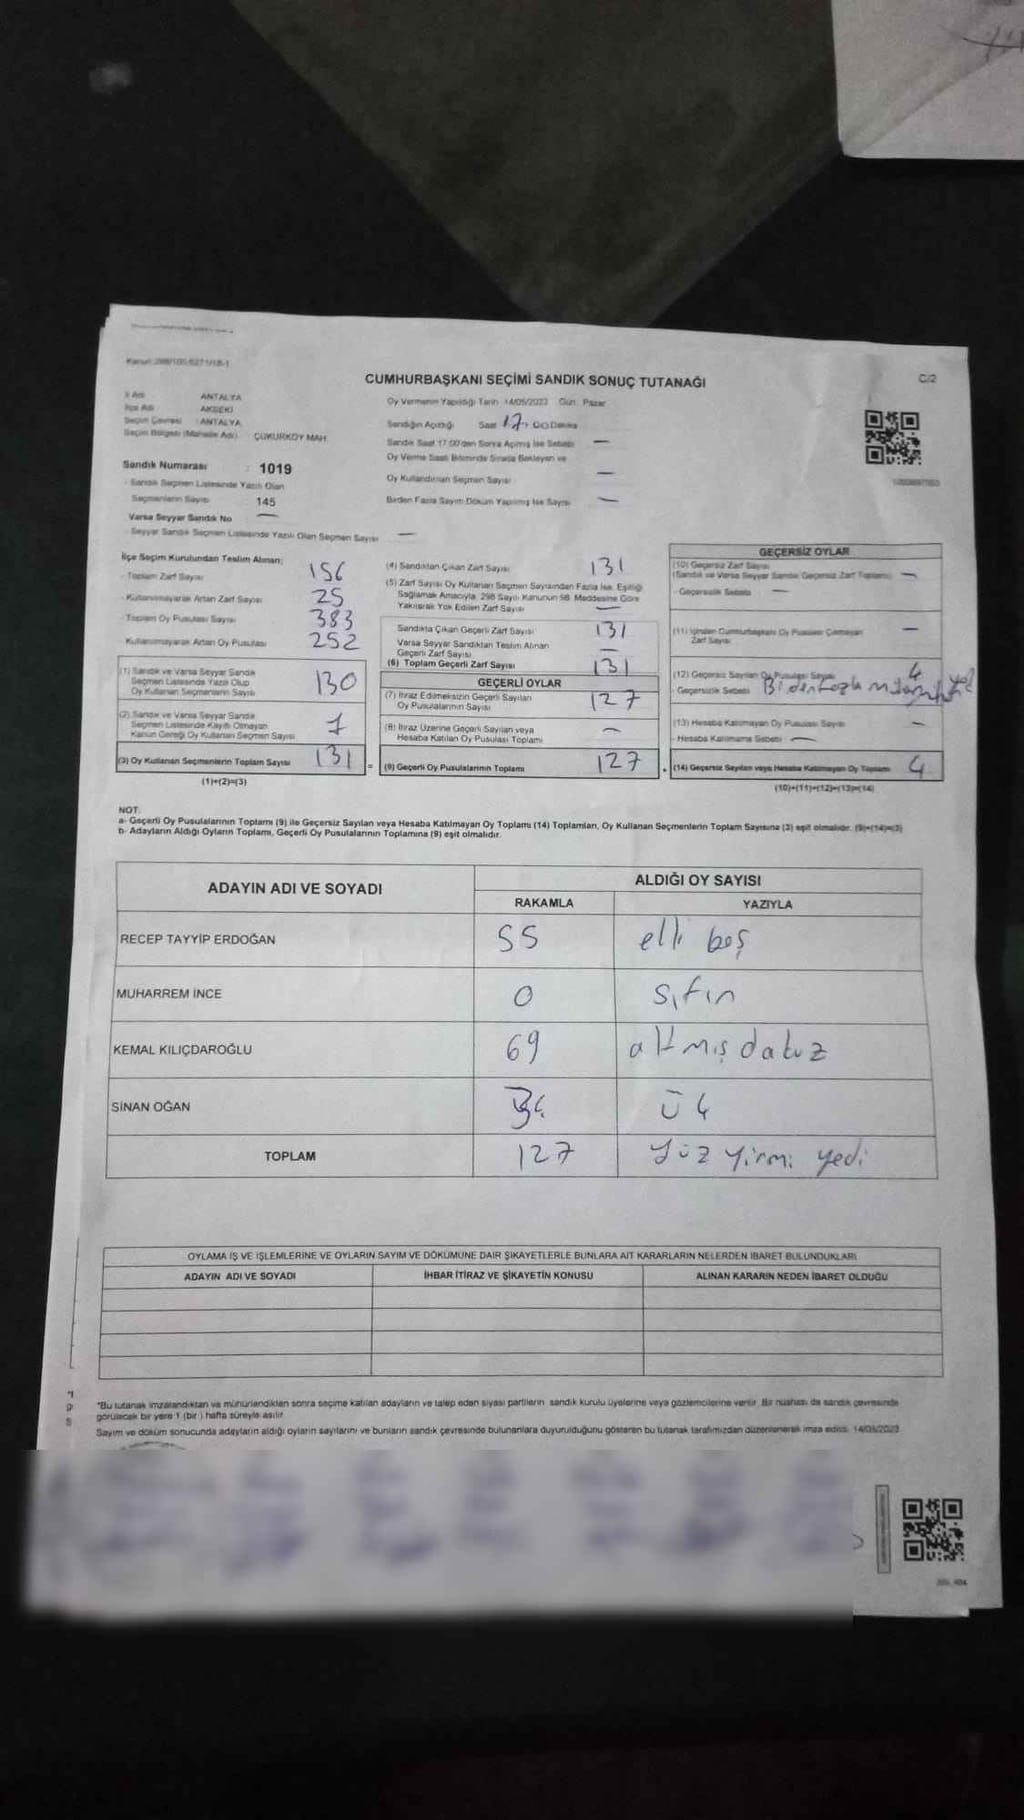 CUMHURBAŞKANI SEÇİMİ SANDIK SONUÇ TUTANAĞI
C/2
İl Adı ANTALYA
İlçe Adı AKSEKİ
Seçim Çevresi ANTALYA
Seçim Bölgesi (Mahalle Adı) ÇUKURKÖY MAH.
Sandık Numarası : 1019
Sandık Seçmen Listesinde Yazılı Olan
Seçmenlerin Sayısı 145
Varsa Seyyar Sandık No —
Seyyar Sandık Seçmen Listesinde Yazılı Olan Seçmen Sayısı —
Oy Vermenin Yapıldığı Tarih 14/05/2023 Gün Pazar
Sandığın Açıldığı Saat 17:00 Dakika
Sandık Saat 17:00'den Sonra Açılmış İse Sebebi —
Oy Verme Saati Bitiminde Sırada Bekleyen ve
Oy Kullandırılan Seçmen Sayısı —
Birden Fazla Sayım Döküm Yapılmış İse Sayısı —
İlçe Seçim Kurulundan Teslim Alınan;
Toplam Zarf Sayısı 156
Kullanılmayarak Artan Zarf Sayısı 25
Toplam Oy Pusulası Sayısı 383
Kullanılmayarak Artan Oy Pusulası 252
(1) Sandık ve Varsa Seyyar Sandık
Seçmen Listesinde Yazılı Olup
Oy Kullanan Seçmenlerin Sayısı 130
(2) Sandık ve Varsa Seyyar Sandık
Seçmen Listesinde Kayıtlı Olmayan
Kanun Gereği Oy Kullanan Seçmen Sayısı 1
(3) Oy Kullanan Seçmenlerin Toplam Sayısı 131
(1)+(2)=(3)
(4) Sandıktan Çıkan Zarf Sayısı 131
(5) Zarf Sayısı Oy Kullanan Seçmen Sayısından Fazla İse, Eşitliği
Sağlamak Amacıyla, 298 Sayılı Kanunun 98. Maddesine Göre
Yakılarak Yok Edilen Zarf Sayısı —
Sandıkta Çıkan Geçerli Zarf Sayısı 131
Varsa Seyyar Sandıktan Teslim Alınan
Geçerli Zarf Sayısı —
(6) Toplam Geçerli Zarf Sayısı 131
GEÇERLİ OYLAR
(7) İtiraz Edilmeksizin Geçerli Sayılan
Oy Pusulalarının Sayısı 127
(8) İtiraz Üzerine Geçerli Sayılan veya
Hesaba Katılan Oy Pusulası Toplamı —
(9) Geçerli Oy Pusulalarının Toplamı 127
GEÇERSİZ OYLAR
(10) Geçersiz Zarf Sayısı
(Sandık ve Varsa Seyyar Sandık Geçersiz Zarf Toplamı) —
Geçersizlik Sebebi —
(11) İçinden Cumhurbaşkanı Oy Pusulası Çıkmayan
Zarf Sayısı —
(12) Geçersiz Sayılan Oy Pusulası Sayısı 4
Geçersizlik Sebebi Birden fazla
(13) Hesaba Katılmayan Oy Pusulası Sayısı —
Hesaba Katılmama Sebebi —
(14) Geçersiz Sayılan veya Hesaba Katılmayan Oy Toplamı 4
(10)+(11)+(12)+(13)=(14)
NOT:
a- Geçerli Oy Pusulalarının Toplamı (9) ile Geçersiz Sayılan veya Hesaba Katılmayan Oy Toplamı (14) Toplamları, Oy Kullanan Seçmenlerin Toplam Sayısına (3) eşit olmalıdır. (9)+(14)=(3)
b- Adayların Aldığı Oyların Toplamı, Geçerli Oy Pusulalarının Toplamına (9) eşit olmalıdır.
ADAYIN ADI VE SOYADI ALDIĞI OY SAYISI
RAKAMLA YAZIYLA
RECEP TAYYİP ERDOĞAN 55 elli beş
MUHARREM İNCE 0 sıfır
KEMAL KILIÇDAROĞLU 69 altmış dokuz
SİNAN OĞAN 3 üç
TOPLAM 127 yüz yirmi yedi
OYLAMA İŞ VE İŞLEMLERİNE VE OYLARIN SAYIM VE DÖKÜMÜNE DAİR ŞİKAYETLERLE BUNLARA AİT KARARLARIN NELERDEN İBARET BULUNDUKLARI
ADAYIN ADI VE SOYADI İHBAR İTİRAZ VE ŞİKAYETİN KONUSU ALINAN KARARIN NEDEN İBARET OLDUĞU
*Bu tutanak imzalandıktan ve mühürlendikten sonra seçime katılan adayların ve talep eden siyasi partilerin sandık kurulu üyelerine veya gözlemcilerine verilir. Bir nüshası da sandık çevresinde
görülecek bir yere 1 (bir) hafta süreyle asılır.
Sayım ve döküm sonucunda adayların aldığı oyların sayılarını ve bunların sandık çevresinde bulunanlara duyurulduğunu gösteren bu tutanak tarafımızdan düzenlenerek imza edildi. 14/05/2023